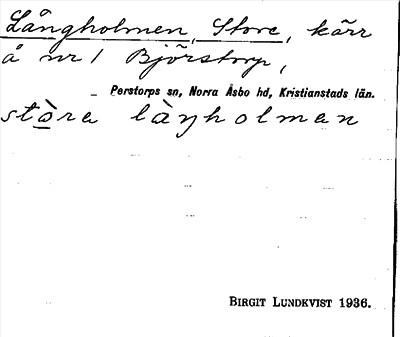 Långholmen, Store, kärr
å nr 1 Björstorp,
Perstorps sn, Norra Åsbo hd, Kristianstads län.
stòra làŋholman
BIRGIT LUNDKVIST 1936.